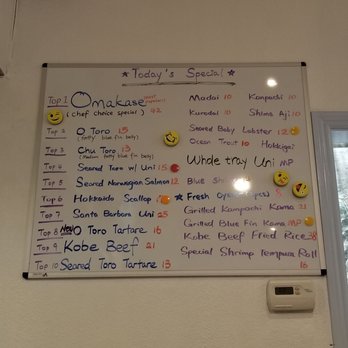 ★ Today's Special ★
Top 1 Omakase
(chef choice special) 42
Top 2 O Toro 15
(fatty blue fin belly)
Top 3 Chu Toro 13
(Medium fatty blue fin belly)
Top 4 Seared Toro w/ Uni 15
Top 5 Seared Norwegian Salmon 12
Top 6 Hokkaido Scallop
Top 7 Santa Barbara Uni 25
Top 8 New O Toro Tartare 16
Top 9 Kobe Beef 21
Top 10 Seared Toro Tartare 13
Madai 10 Kanpachi 10
Kurodai 10 Shima Aji 10
Seared Baby Lobster 12
Ocean Trout 10 Hokkigai
Whole tray Uni MP
Blue
★ Fresh
Grilled Kampachi Kama 21
Grilled Blue Fin Kama MP
Kobe Beef Fried Rice 38
Special Shrimp Tempura Roll
16